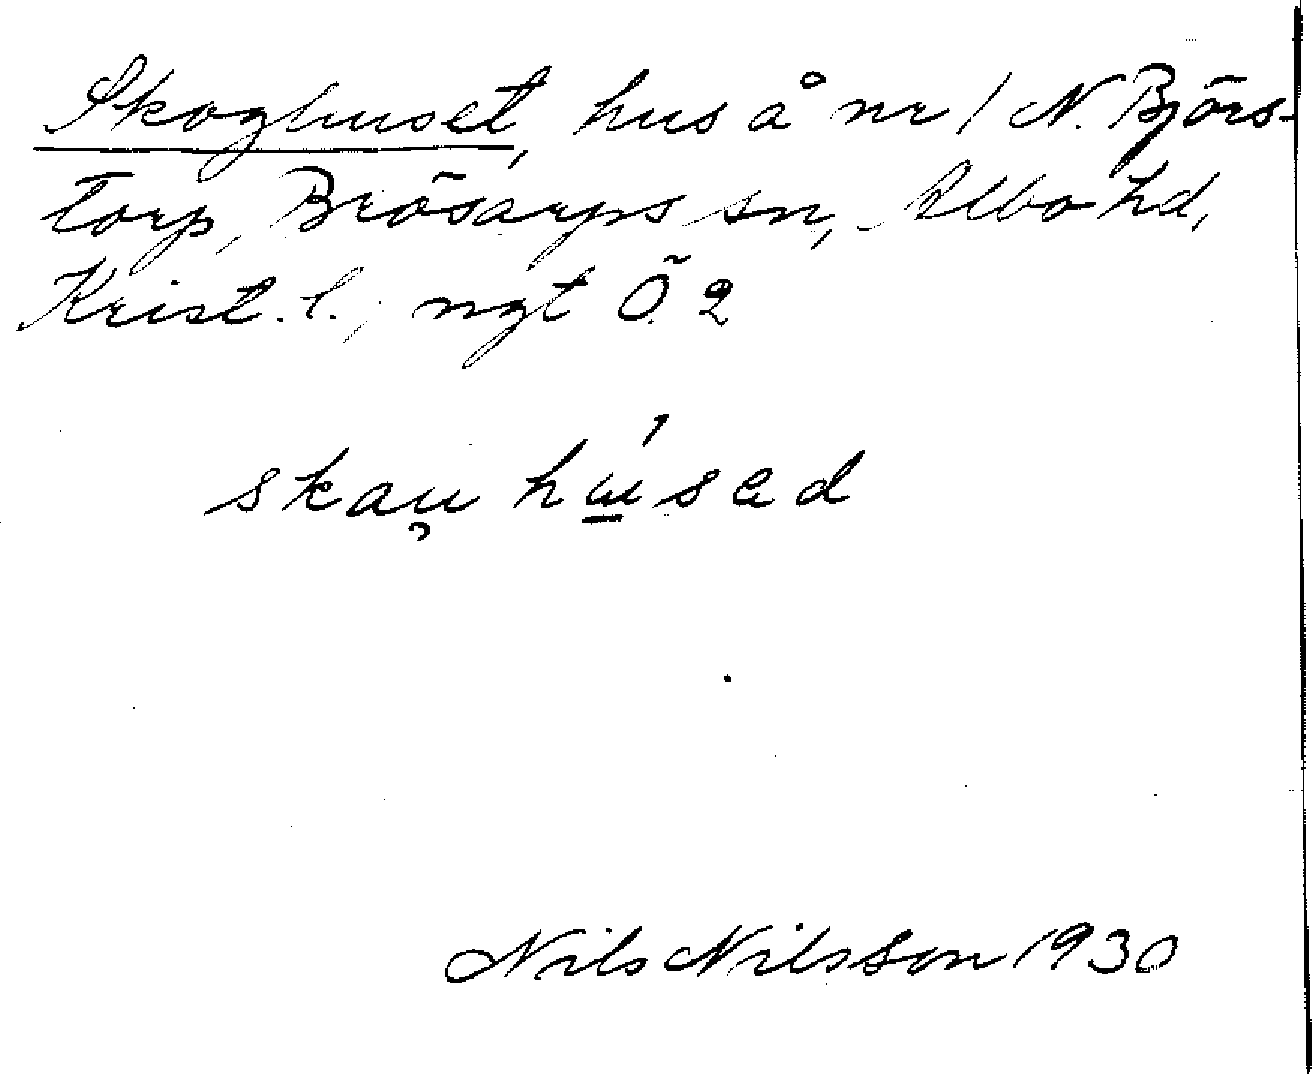 Skoghuset, hus å nr 1 N. Björs-
torp, Brösarps sn, Albo hd,
Krist. l.; ngt Ö. 2
skau̯ hú̲sad
Nils Nilsson 1930